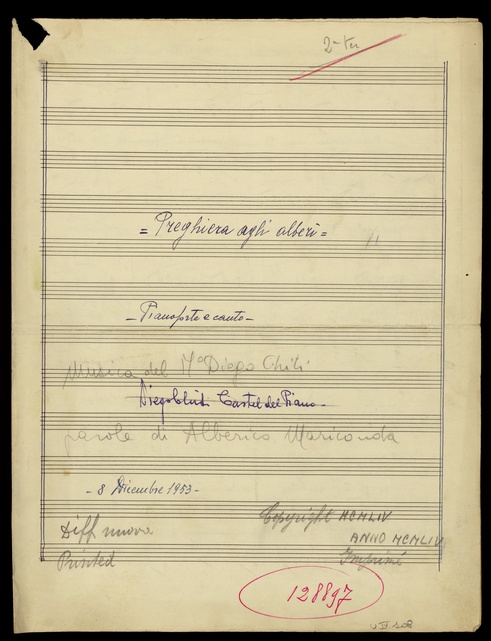 = Preghiera agli alberi =
- Pianoforte e canto -
Musica del Mº Diego Chiti
Castel del Piano -
parole di Alberico Mariconda
- 8 Dicembre 1953 -
Copyright MCMLIV
Diff nuova
ANNO MCMLIV
Printed
Imprimé
128897